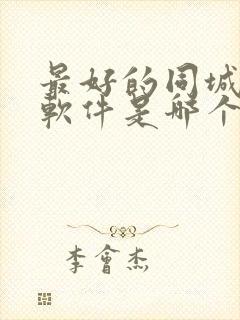 最好的同城
軟件是哪个
李會杰